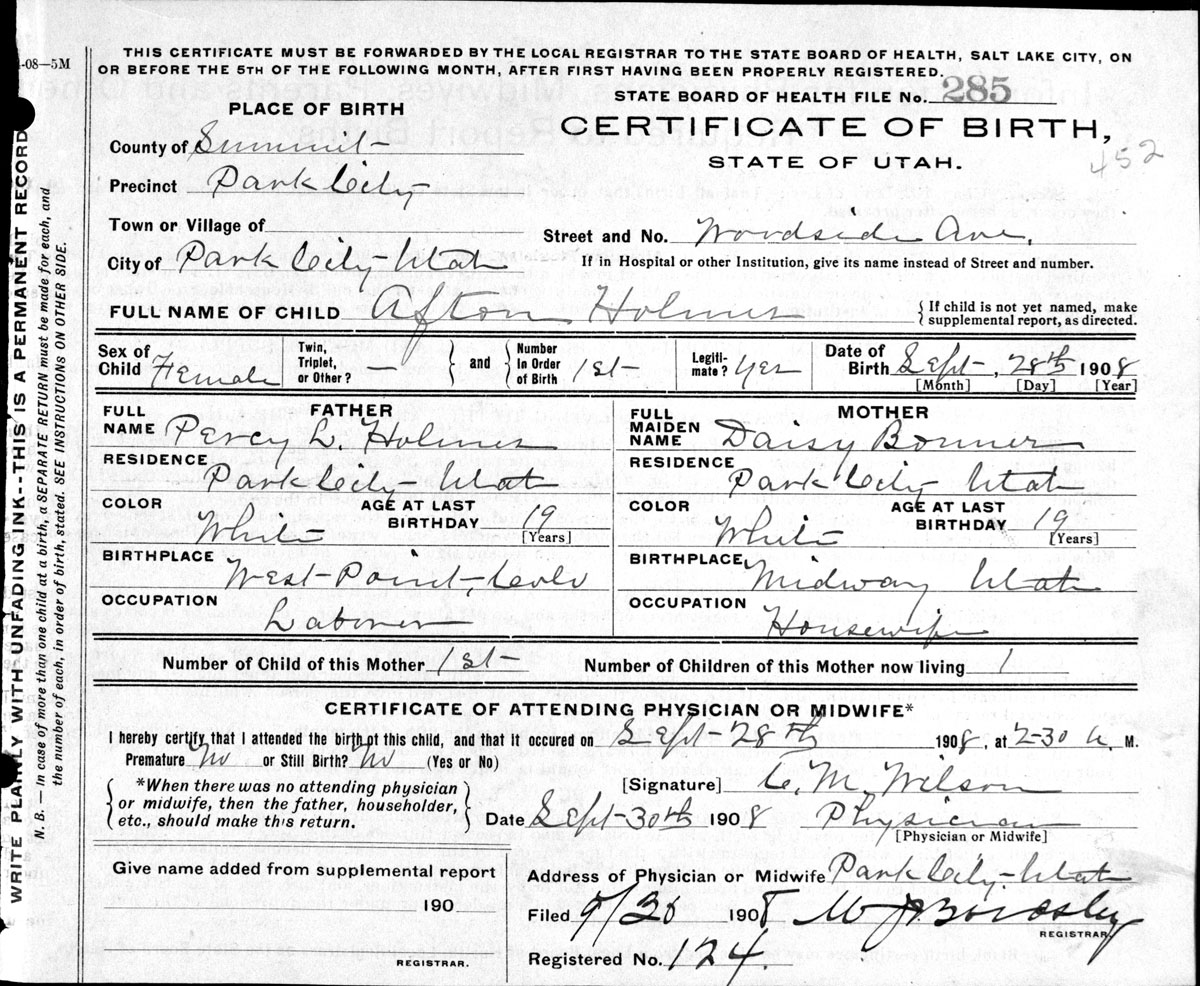 1-08—5M
THIS CERTIFICATE MUST BE FORWARDED BY THE LOCAL REGISTRAR TO THE STATE BOARD OF HEALTH, SALT LAKE CITY, ON
OR BEFORE THE 5TH OF THE FOLLOWING MONTH, AFTER FIRST HAVING BEEN PROPERLY REGISTERED.
STATE BOARD OF HEALTH FILE No. 285
PLACE OF BIRTH
CERTIFICATE OF BIRTH,
STATE OF UTAH.
452
County of Summit
Precinct Park City
Town or Village of
Street and No. Woodside Ave.
City of Park City Utah
If in Hospital or other Institution, give its name instead of Street and number.
FULL NAME OF CHILD Afton Holmes
{If child is not yet named, make
supplemental report, as directed.
Sex of Child Female
Twin, Triplet, or Other? —
and
Number In Order of Birth 1st
Legiti-mate? Yes
Date of Birth Sept, 28th 1908
[Month] [Day] [Year]
FATHER
FULL NAME Percy L. Holmes
RESIDENCE Park City Utah
COLOR White
AGE AT LAST BIRTHDAY 19
[Years]
BIRTHPLACE West Point, Colo
OCCUPATION Laborer
MOTHER
FULL MAIDEN NAME Daisy Bonner
RESIDENCE Park City Utah
COLOR White
AGE AT LAST BIRTHDAY 19
[Years]
BIRTHPLACE Midway Utah
OCCUPATION Housewife
Number of Child of this Mother 1st
Number of Children of this Mother now living 1
CERTIFICATE OF ATTENDING PHYSICIAN OR MIDWIFE*
I hereby certify that I attended the birth of this child, and that it occured on Sept-28th 1908, at 2-30 a. M.
Premature No or Still Birth? No (Yes or No)
[Signature] C. M. Wilson
{*When there was no attending physician
or midwife, then the father, householder,
etc., should make this return.}
Date Sept-30th 1908 Physician
[Physician or Midwife]
Give name added from supplemental report
190
REGISTRAR.
Address of Physician or Midwife Park City Utah
Filed 9/30 1908
REGISTRAR.
Registered No. 124.
WRITE PLAINLY WITH UNFADING INK--THIS IS A PERMANENT RECORD
N. B.—In case of more than one child at a birth, a SEPARATE RETURN must be made for each, and
the number of each, in order of birth, stated. SEE INSTRUCTIONS ON OTHER SIDE.